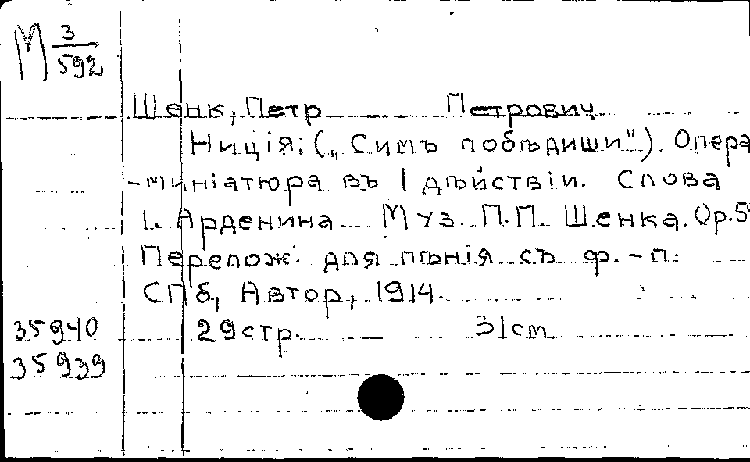 М 3/592
Шенк, Петр Петрович
Ниція: („Симъ побѣдиши"). Опера
-миніатюра въ 1 дѣйствіи. Слова
І. Арденина Муз. П.П. Шенка. Op.5
Перелож. для пѣнія съ ф.-п.
СПб, Автор, 1914.
35940 29 стр. 31cm
35939